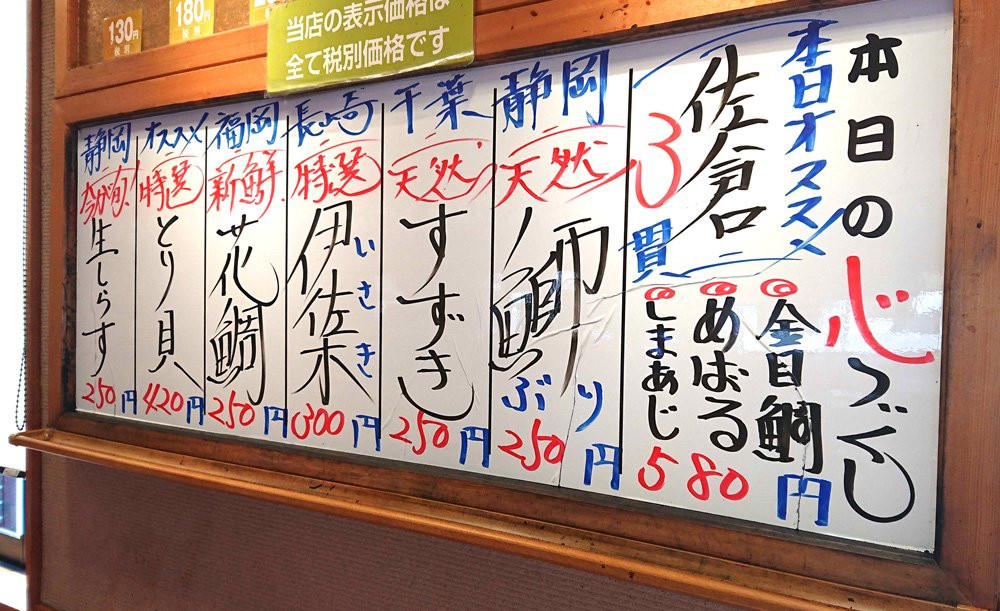 130円
税別
180円
税別
当店の表示価格は
全て税別価格です
本日の心づくし
本日オススメ
佐倉
3貫
金目鯛
めばる
しまあじ
580円
静岡
天然
鰤
ぶり
250円
千葉
天然
すずき
250円
長崎
特選
伊佐木
いさき
300円
福岡
新鮮
花鯛
250円
オススメ
特選
とり貝
420円
静岡
今が旬!
生しらす
250円